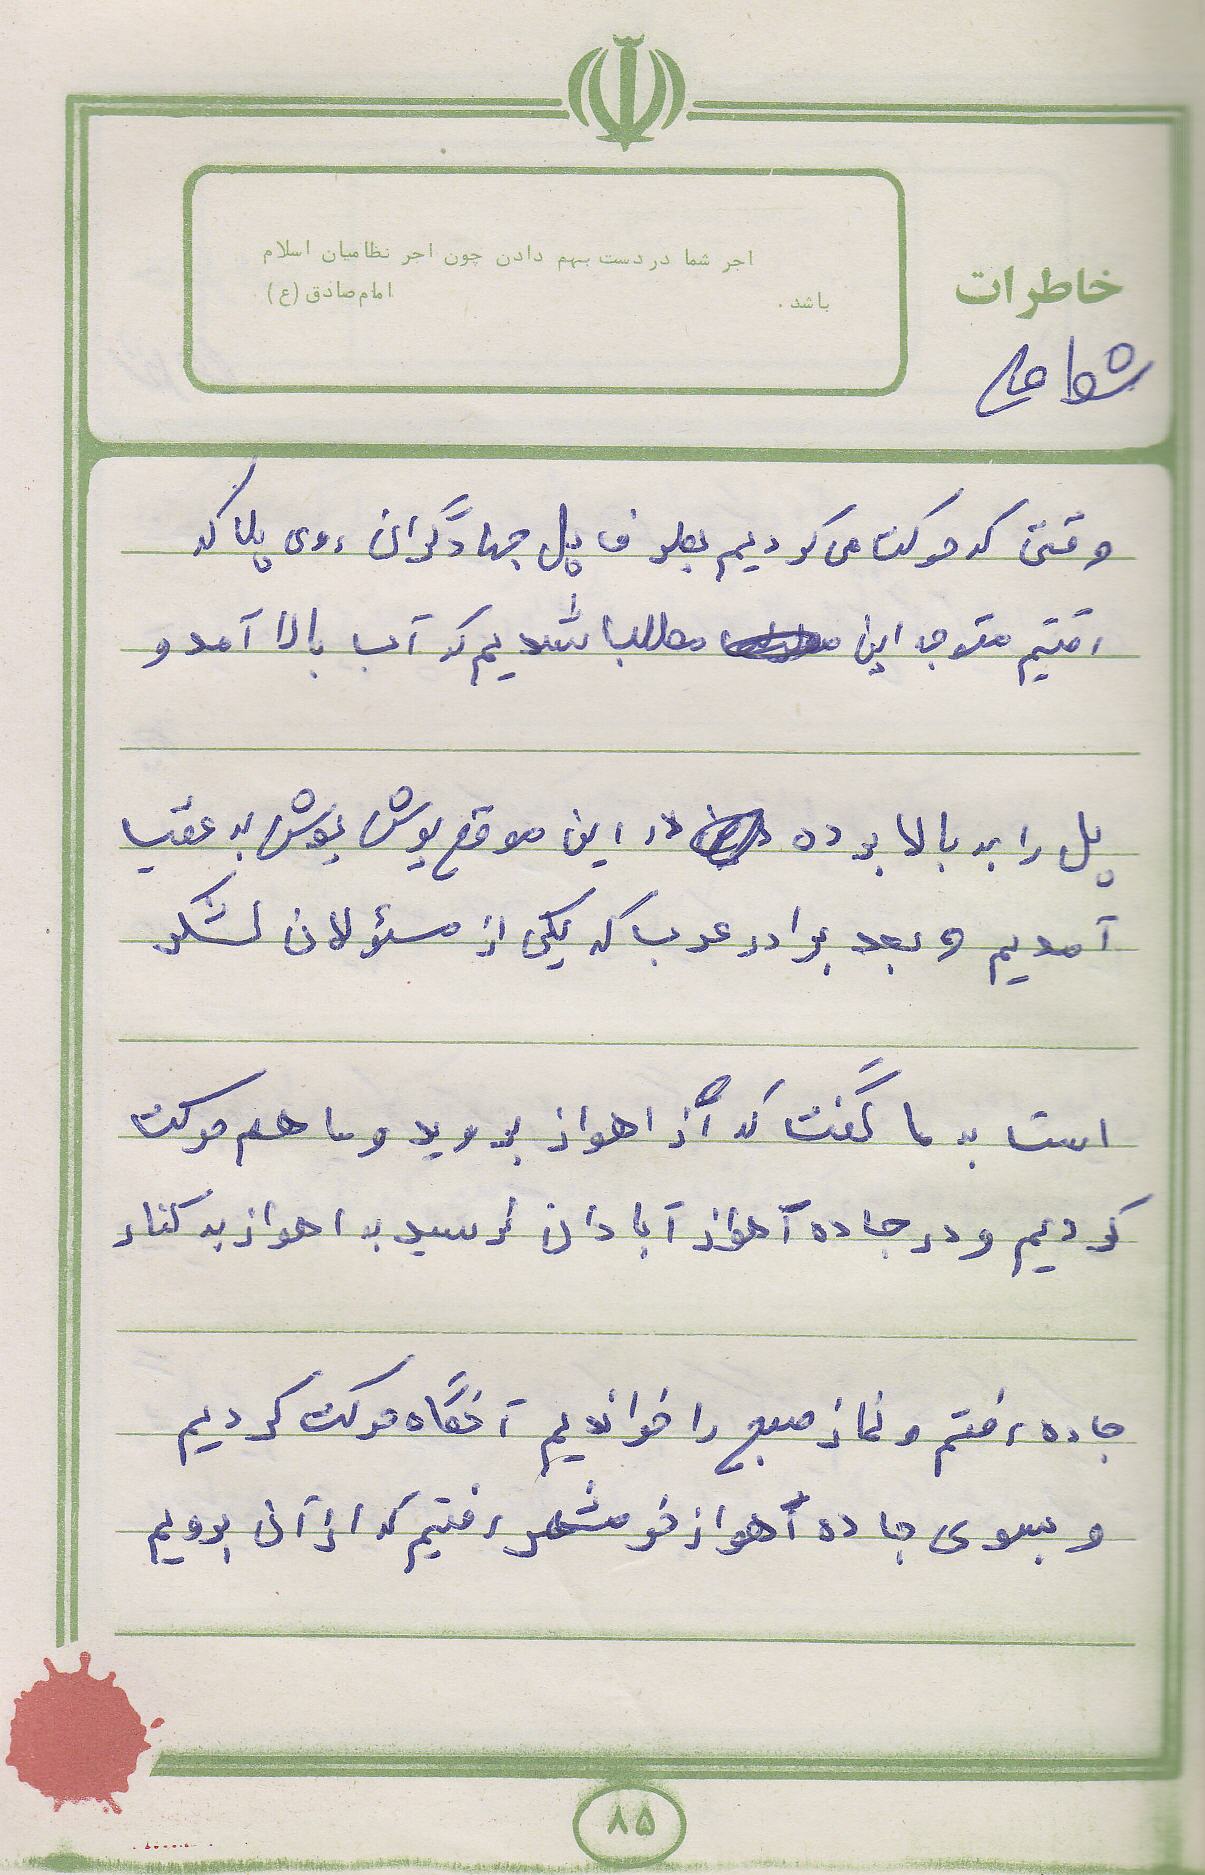 اجر شما در دست بهم دادن چون اجر نظامیان اسلام
باشد. امام صادق (ع)
خاطرات
وقتی که حرکت می کردیم بطرف پل جهادگران روی پل که
رفتیم متوجه این مطلب شدیم که آب بالا آمد و
پل را به بالا برده در این موقع یوش یوش به عقب
آمدیم و بعد برادر عرب که یکی از مسئولان لشکر
است به ما گفت که از اهواز بروید و ما هم حرکت
کردیم و در جاده اهواز آبادان نرسید به اهواز به کنار
جاده رفتم و نماز صبح را خواندیم آنگاه حرکت کردیم
و بسوی جاده اهواز خرمشهر رفتیم که از آن برویم
۸۵